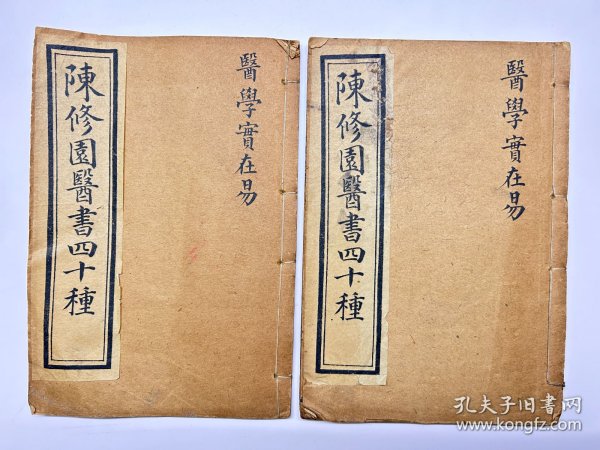 陳修園醫書四十種
醫學實在易
陳修園醫書四十種
醫學實在易
孔夫子旧书网
www.kongfz.com